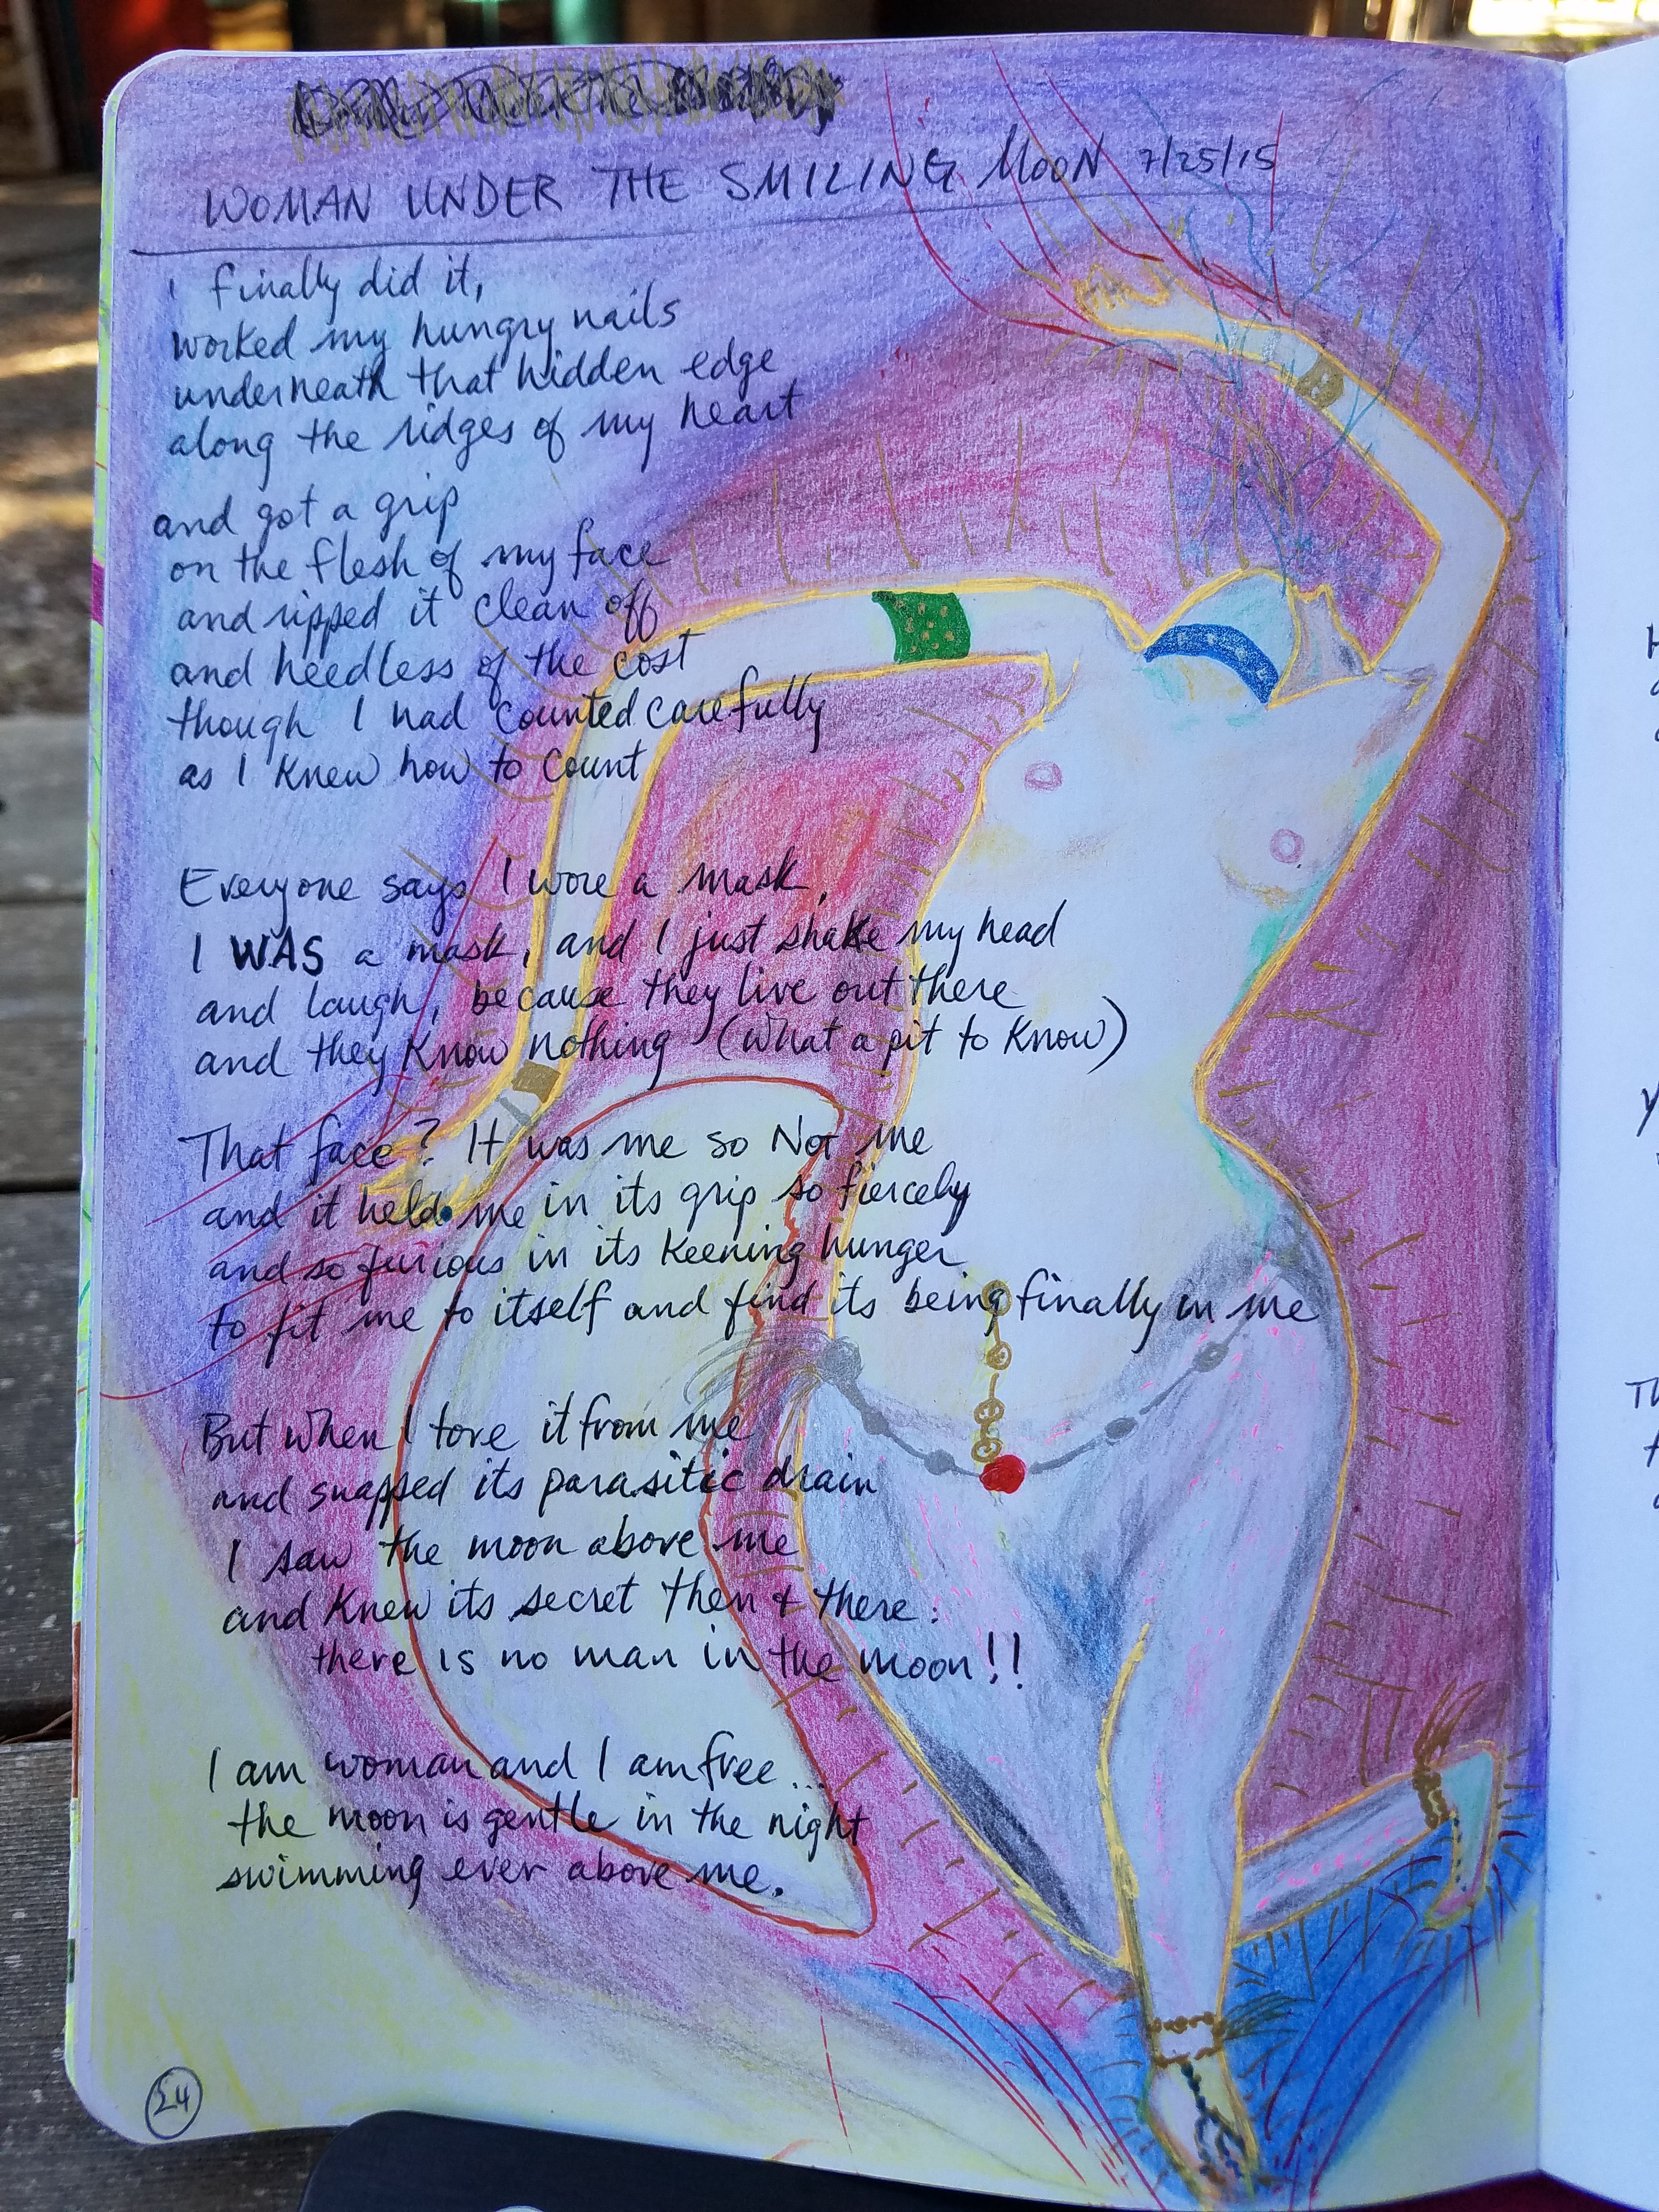 WOMAN UNDER THE SMILING MOON 7/25/15
I finally did it,
worked my hungry nails
underneath that hidden edge
along the ridges of my heart
and got a grip
on the flesh of my face
and ripped it clean off
and heedless of the cost
though I had counted carefully
as I knew how to count
Everyone says I wore a mask,
I WAS a mask, and I just shake my head
and laugh, because they live out there
and they know nothing (what a pit to know)
That face? It was me so Not me
and it held me in its grip so fiercely
and so furious in its keening hunger
to fit me to itself and find its being finally in me
But when I tore it from me
and snapped its parasitic drain
I saw the moon above me
and knew its secret then & there:
there is no man in the moon!!
I am woman and I am free...
the moon is gentle in the night
swimming ever above me.
24